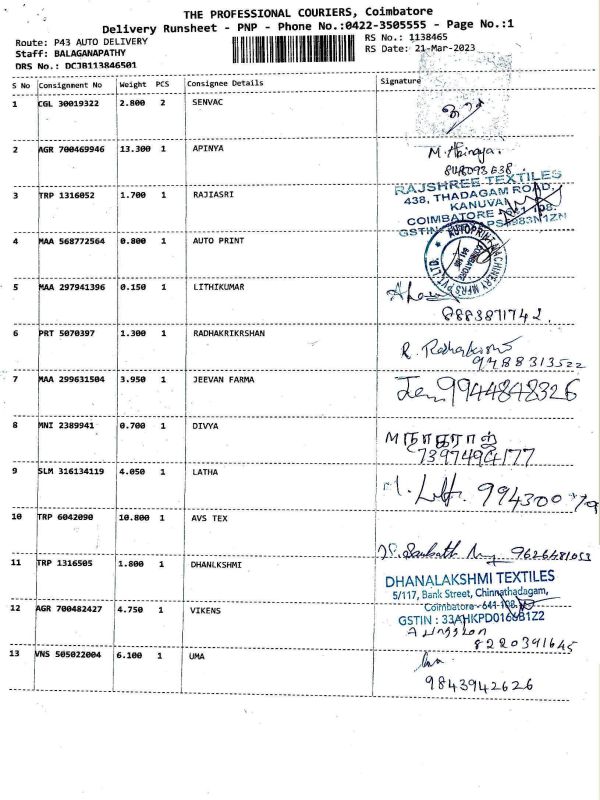 THE PROFESSIONAL COURIERS, Coimbatore
Delivery Runsheet - PNP - Phone No.:0422-3505555 - Page No.:1
Route: P43 AUTO DELIVERY
RS No.: 1138465
Staff: BALAGANAPATHY
RS Date: 21-Mar-2023
DRS No.: DCJB113846501
S No Consignment No Weight PCS Consignee Details Signature
1 CGL 30019322 2.800 2 SENVAC
2 AGR 700469946 13.300 1 APINYA
3 TRP 1316052 1.700 1 RAJIASRI
RAJSHREE TEXTILES
438, THADAGAM ROAD,
KANUVAI
COIMBATORE
GSTIN
4 MAA 568772564 0.800 1 AUTO PRINT
AUTOPRINT MACHINERY MFRS PVT. LTD.
COIMBATORE
5 MAA 297941396 0.150 1 LITHIKUMAR
8883871742.
6 PRT 5070397 1.300 1 RADHAKRIKRSHAN
R.
9488313522
7 MAA 299631504 3.950 1 JEEVAN FARMA
Jen 9944848326
8 MNI 2389941 0.700 1 DIVYA
நாகராஜ்
7397494177
9 SLM 316134119 4.050 1 LATHA
10 TRP 6042090 10.800 1 AVS TEX
9626481053
11 TRP 1316505 1.800 1 DHANLKSHMI
DHANALAKSHMI TEXTILES
5/117, Bank Street, Chinnathadagam,
Coimbatore - 641 108.
GSTIN : 33AHKPD0166B1Z2
12 AGR 700482427 4.750 1 VIKENS
8220391645
13 VNS 505022004 6.100 1 UMA
9843942626